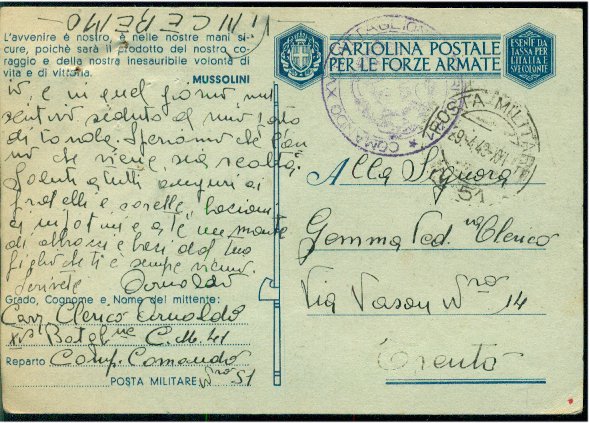 VINCEREMO
L'avvenire è nostro, è nelle nostre mani si-
curo, poichè sarà il prodotto del nostro co-
raggio e della nostra inesauribile volontà di
vita e di vittoria.
MUSSOLINI
io e in quel giorno mi
sentirò seduto al
di tavola. Speriamo che
che viene sia
a tutti auguri ai
fratelli e sorelle, bacioni
ai nipotini e a te un monte
di abbracci e baci dal tuo
figlio che ti è sempre vicino.
Scrivete Arnaldo
Grado, Cognome e Nome del mittente:
Clerico Arnaldo
C. M. 41
Reparto Comp. Comando
POSTA MILITARE Nro 51
CARTOLINA POSTALE
PER LE FORZE ARMATE
ESENTE DA
TASSA PER
L'ITALIA E
SVE COLONIE
COMANDO
POSTA MILITARE
51
Alla Signora
Gemma Ved.va Clerico
Via Vason Nro 14
Trento